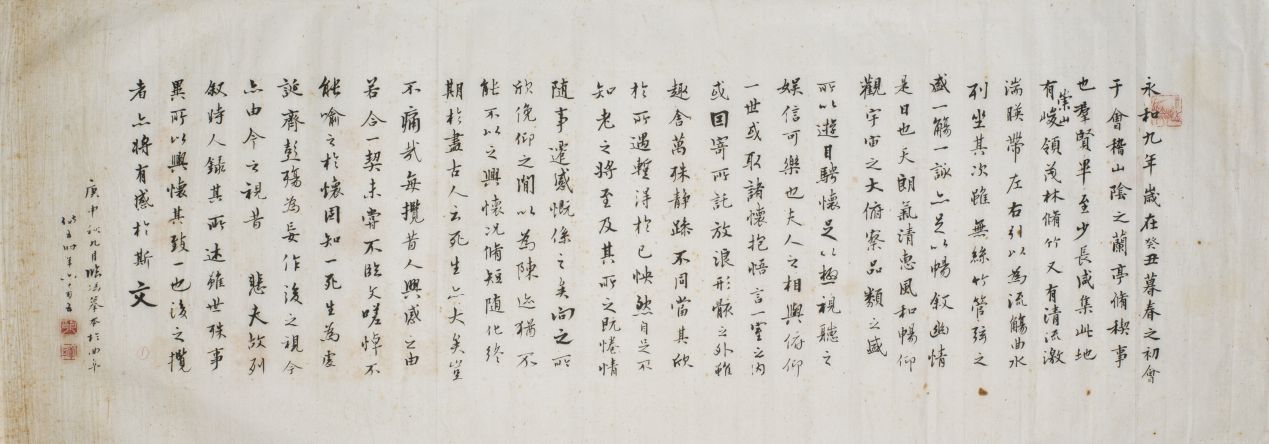 永和九年歲在癸丑暮春之初會
于會稽山陰之蘭亭脩稧事
也羣賢畢至少長咸集此地
有崇山峻領茂林脩竹又有清流激
湍暎帶左右引以為流觴曲水
列坐其次雖無絲竹管弦之
盛一觴一詠亦足以暢敘幽情
是日也天朗氣清惠風和暢仰
觀宇宙之大俯察品類之盛
所以遊目騁懷足以極視聽之
娛信可樂也夫人之相與俯仰
一世或取諸懷抱悟言一室之內
或因寄所託放浪形骸之外雖
趣舍萬殊靜躁不同當其欣
於所遇暫得於己怏然自足不
知老之將至及其所之既惓情
隨事遷感慨係之矣向之所
欣俛仰之閒以為陳迹猶不
能不以之興懷況脩短隨化終
期於盡古人云死生亦大矣豈
不痛哉每攬昔人興感之由
若合一契未嘗不臨文嗟悼不
能喻之於懷固知一死生為虛
誕齊彭殤為妄作後之視今
亦由今之視昔 悲夫故列
敘時人錄其所述雖世殊事
異所以興懷其致一也後之攬
者亦將有感於斯文
庚申秋九月臨馮摹本於西
時年六十有五